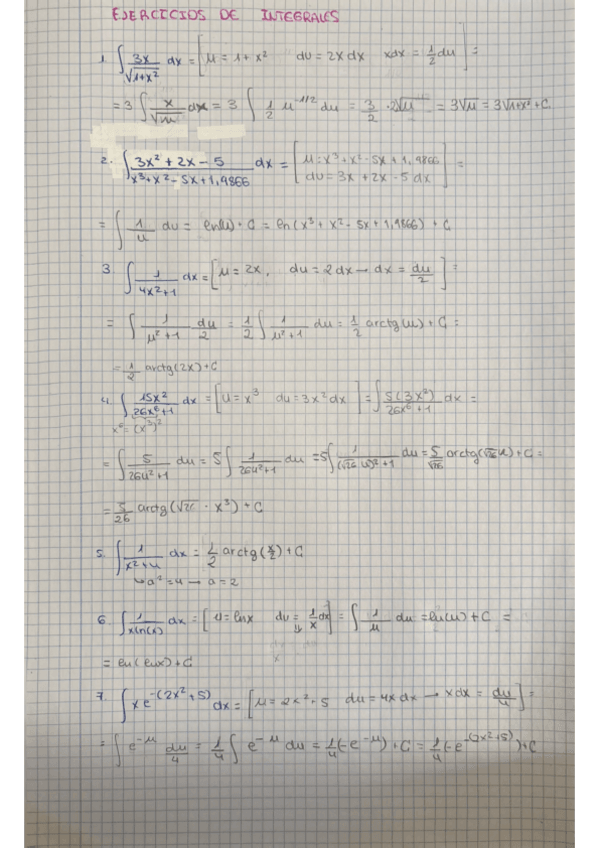 EJERCICIOS DE INTEGRALES
1. ∫ 3x/√(1+x²) dx = [ u = 1 + x²   du = 2x dx   xdx = 1/2 du ] =
= 3 ∫ x/√u dx = 3 ∫ 1/2 u^(-1/2) du = 3/2 · 2√u = 3√u = 3√(1+x²) + C
2. ∫ (3x² + 2x - 5)/(x³+x²-5x+1,9866) dx = [ u: x³+x²-5x+1,9866
du = 3x + 2x - 5 dx ] =
= ∫ 1/u du = ln(u) + C = ln(x³ + x² - 5x + 1,9866) + C
3. ∫ 1/(4x²+1) dx = [ u = 2x, du = 2dx → dx = du/2 ] =
= ∫ 1/(u²+1) du/2 = 1/2 ∫ 1/(u²+1) du = 1/2 arctg(u) + C =
= 1/2 arctg(2x) + C
4. ∫ 15x²/(26x⁶+1) dx = [ u = x³   du = 3x² dx ] = ∫ 5(3x²)/(26x⁶+1) dx =
x⁶ = (x³)²
= ∫ 5/(26u²+1) du = 5 ∫ 1/(26u²+1) du = 5 ∫ 1/((√26 u)²+1) du = 5/√26 arctg(√26 u) + C =
= 5/26 arctg(√26 · x³) + C
5. ∫ 1/(x²+4) dx = 1/2 arctg(x/2) + C
↳ a² = 4 → a = 2
6. ∫ 1/(xln(x)) dx = [ u = lnx   du = 1/x dx ] = ∫ 1/u du = ln(u) + C =
= ln(lnx) + C
7. ∫ x e^(-(2x²+5)) dx = [ u = 2x² + 5   du = 4x dx → xdx = du/4 ] =
= ∫ e^(-u) du/4 = 1/4 ∫ e^(-u) du = 1/4 (-e^(-u)) + C = 1/4 (-e^(-(2x²+5))) + C